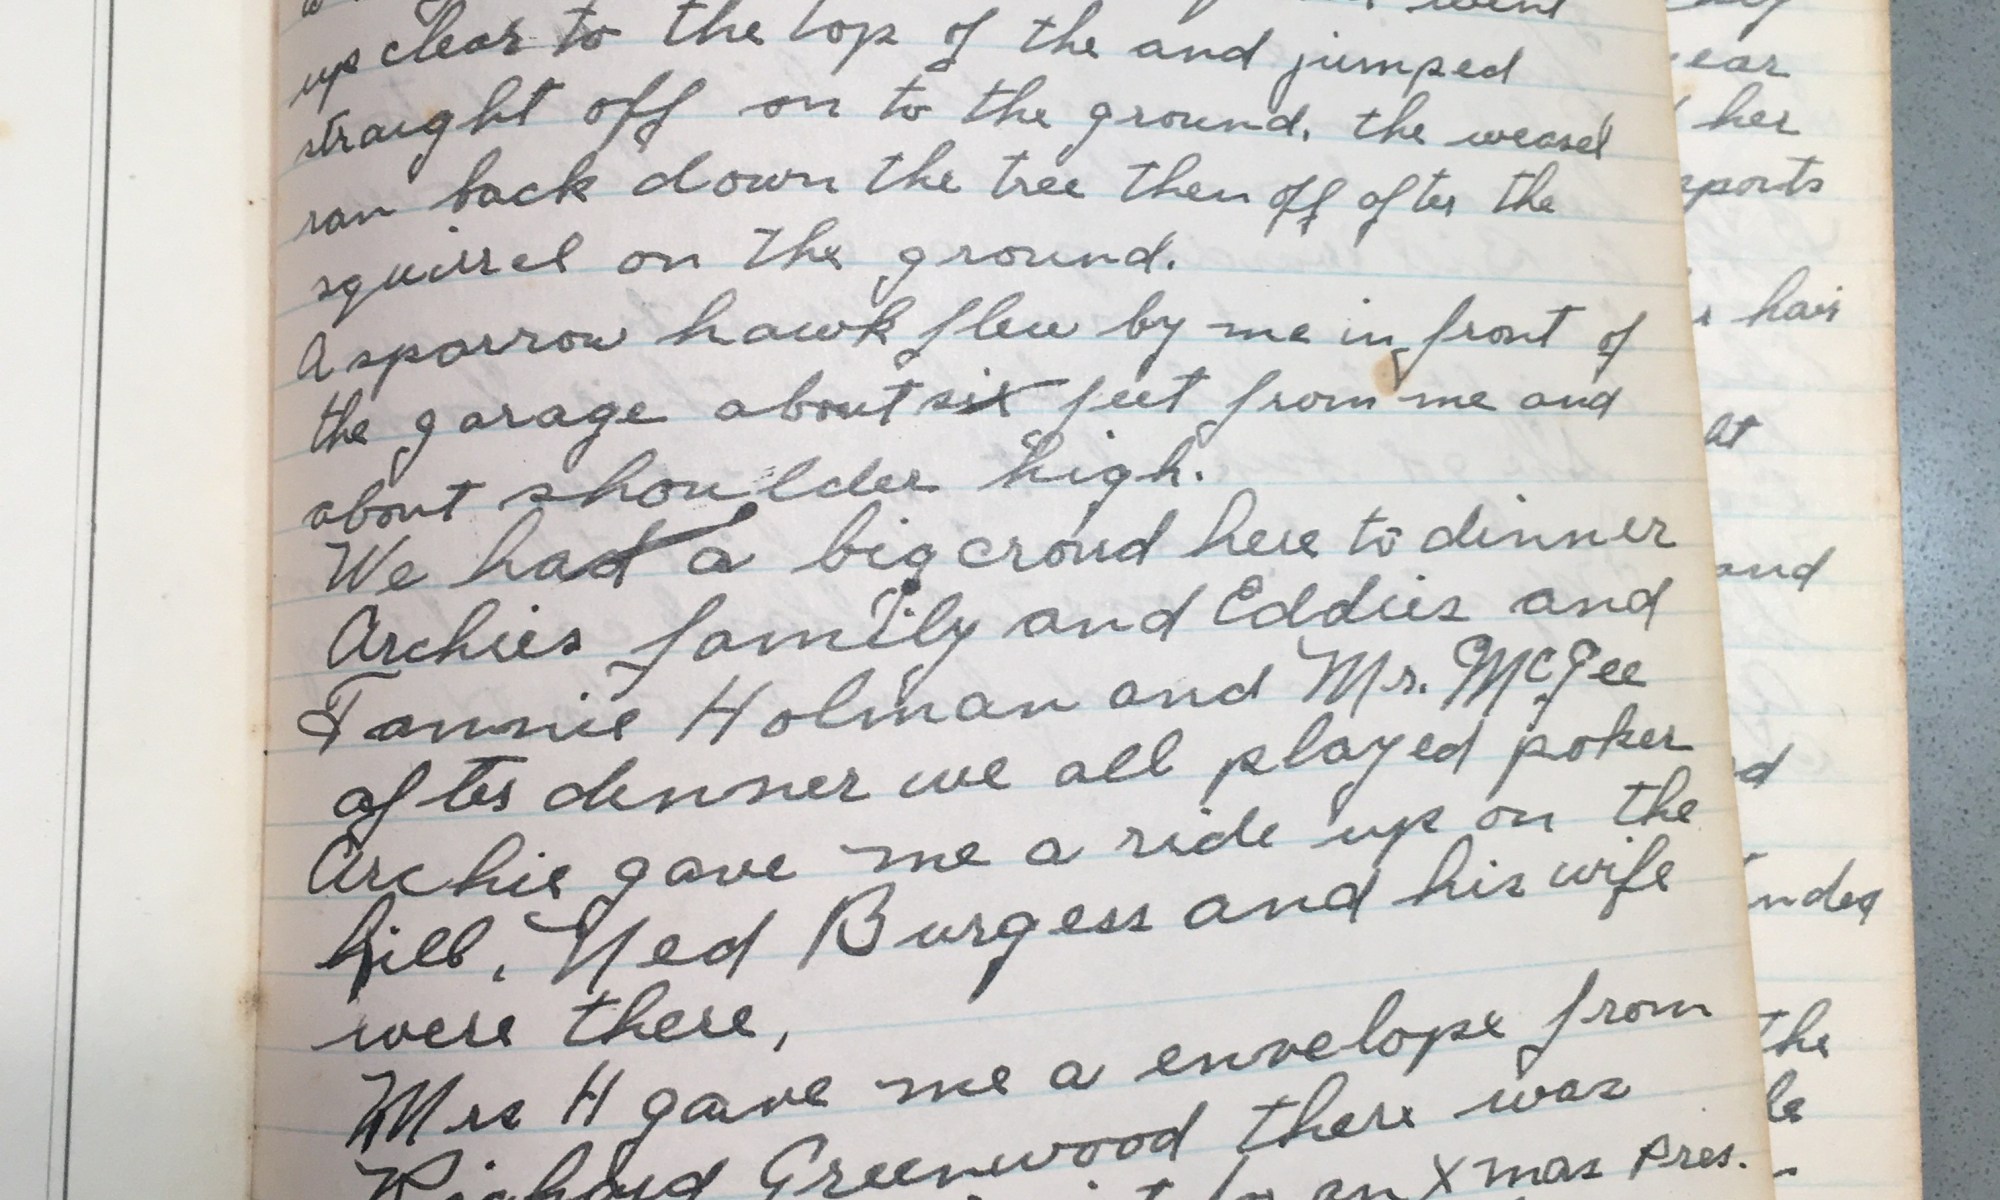 went
up clear to the top of the and jumped
straight off on to the ground. the weasel
ran back down the tree then off after the
squirrel on the ground.
A sparrow hawk flew by me in front of
the garage about six feet from me and
about shoulder high.
We had a big croud here to dinner
Archies family and Eddies and
Fannie Holman and Mr. McGee
after dinner we all played poker
Archie gave me a ride up on the
hill, Ned Burgess and his wife
were there,
Mrs H gave me a envelope from
Richard Greenwood there was
an Xmas Pres.
ear
her
sports
hair
and
the